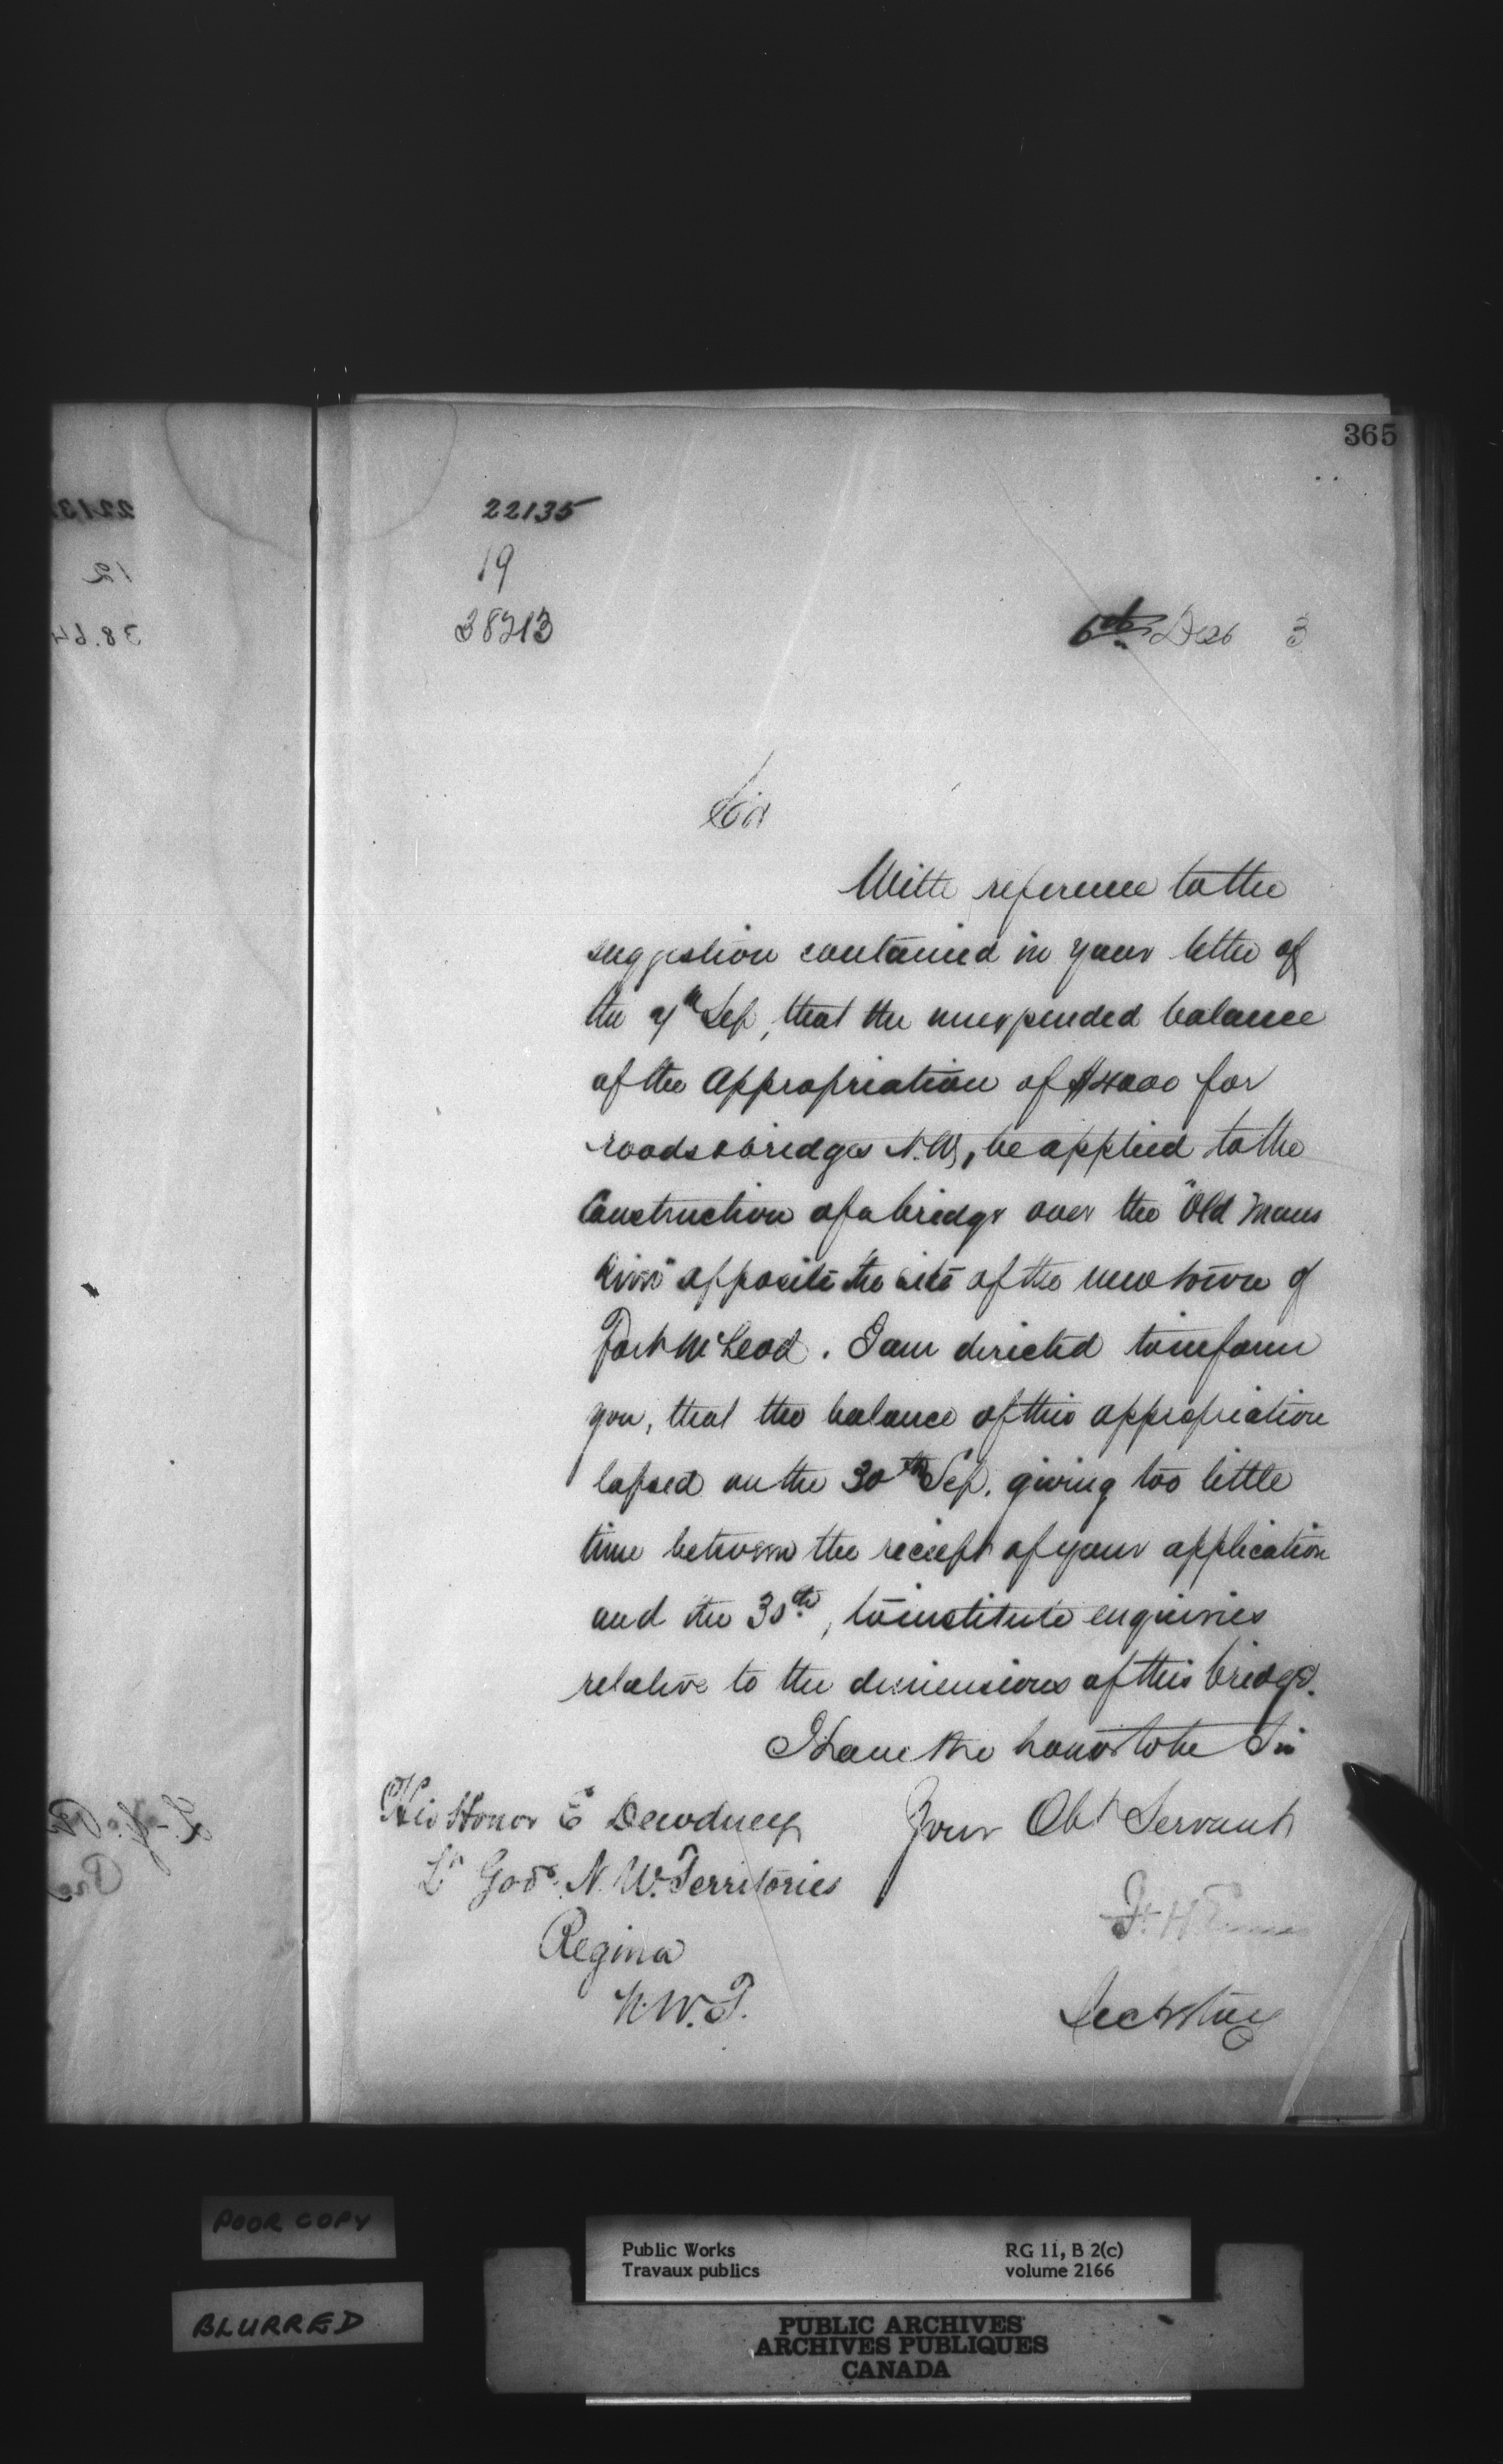 365
22135
19
38213
6th Dec 3
Sir
With reference to the
suggestion contained in your letter of
the 7th Sep, that the unexpended balance
of the Appropriation of $4000 for
roads & bridges N.W, be applied to the
Construction of a bridge over the "Old Mans
River" opposite the site of the new town of
Fort McLeod. I am directed to inform
you, that the balance of this appropriation
lapsed on the 30th Sep. giving too little
time between the reciept of your application
and the 30th, to institute enquiries
relative to the dimensions of this bridge.
I have the honor to be Sir
Your Obt Servant
His Honor E Dewdney
Lt Govr. N. W. Territories
Regina
N.W.T.
F. H. E
Secretary
POOR COPY
BLURRED
Public Works
Travaux publics
RG 11, B 2(c)
volume 2166
PUBLIC ARCHIVES
ARCHIVES PUBLIQUES
CANADA